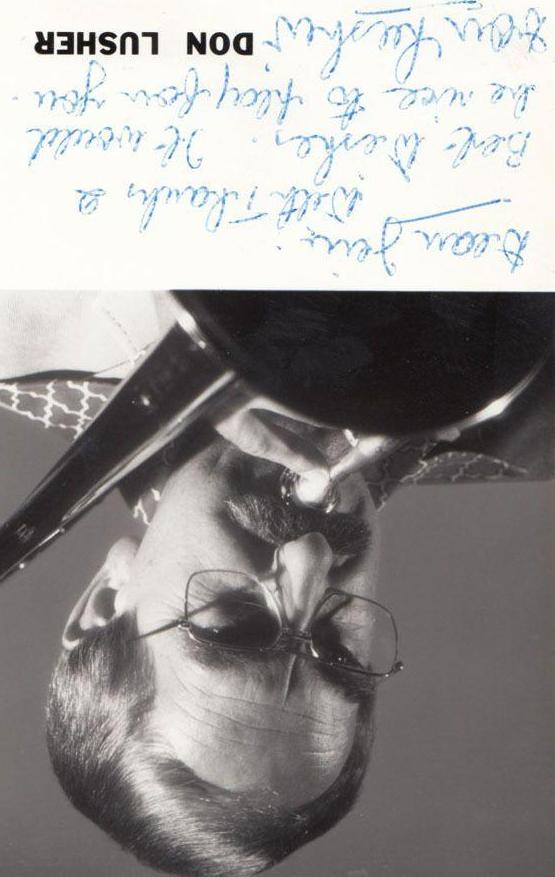 Dear Jim,
With Thanks &
Best Wishes. It would
be nice to play for you.
Don Lusher
DON LUSHER